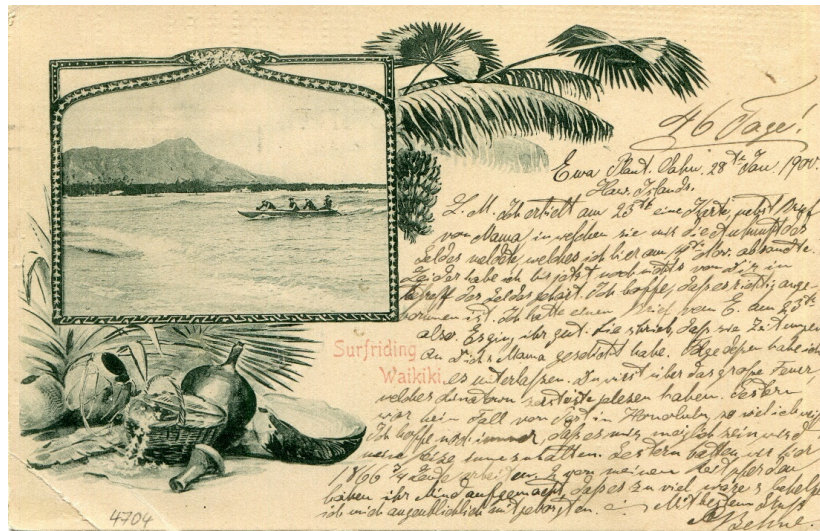 46 Tage!
Ewa Plant. Oahu, 28th Jan. 1900.
Haw. Islands.
L. M. Ich erhielt am 23th eine Karte, nebst Brief
von Mama, in welchen sie mir die Ankunft des
Geldes meldete, welches ich hier am Nov. absandte.
Leider habe ich bis jetzt noch nichts von Dir in
betreff des Geldes gehört. Ich hoffe, daß es richtig ange-
kommen ist. Ich hatte einen Brief von E. am 23th
also. Es ging ihr gut. Sie schrieb, daß sie Zeitungen
an Dich & Mama geschickt habe. habe ich
es unterlassen. Du wirst über das große Feuer,
welches Chinatown zerstörte gelesen haben. Gestern
war kein Fall von Pest in Honolulu, so viel ich weiß.
Ich hoffe noch immer, daß es mir möglich sein wird
meine Reise innezuhalten. Gestern hatten wir hier
1866 3/4 Leute arbeiten. von meinen
haben ihr aufgemacht, daß es zu viel wäre &
ich mich augenblicklich mit geborgten. Mit bestem Gruß
Surfriding
Waikiki
4704